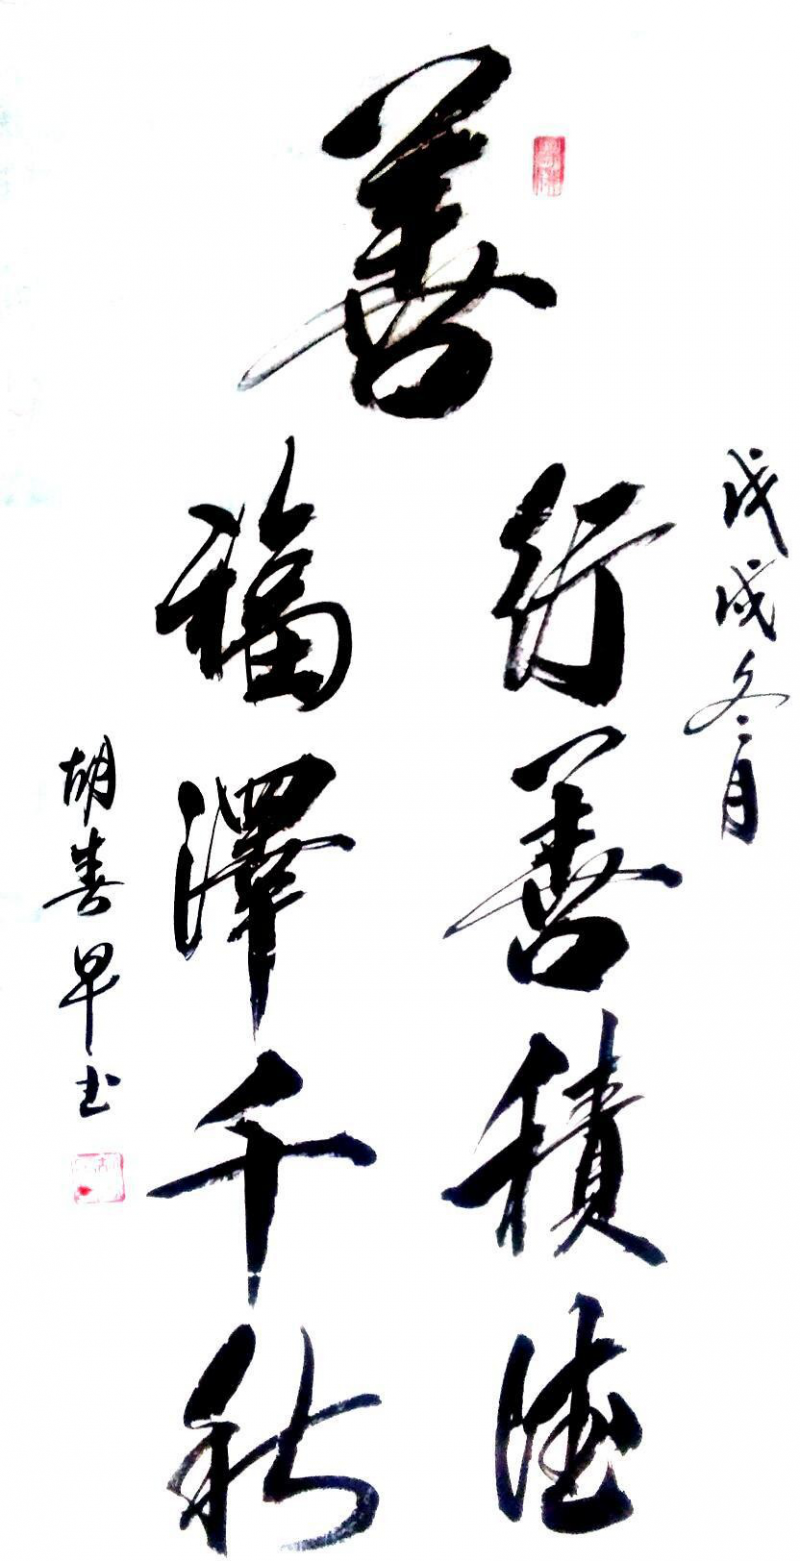 善
戊戌冬月
行善積德
福澤千秋
胡春早书